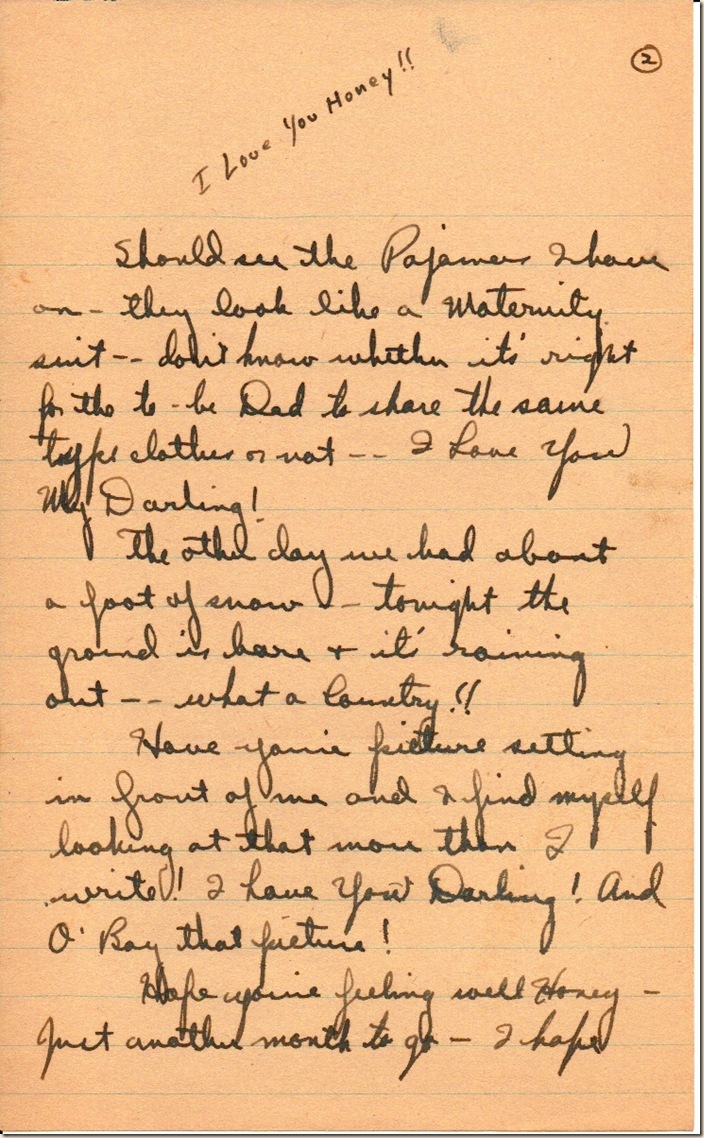 2
I Love You Honey!!
Should see the Pajamas I have
on - they look like a Maternity
suit -- don't know whether it's right
for the to-be Dad to share the same
type clothes or not -- I Love You
My Darling!
The other day we had about
a foot of snow -- tonight the
ground is bare + it's raining
out -- what a Country!!
Have your picture setting
in front of me and I find myself
looking at that more than I
write! I Love You Darling! And
O' Boy that picture!
Hope you're feeling well Honey -
Just another month to go - I hope